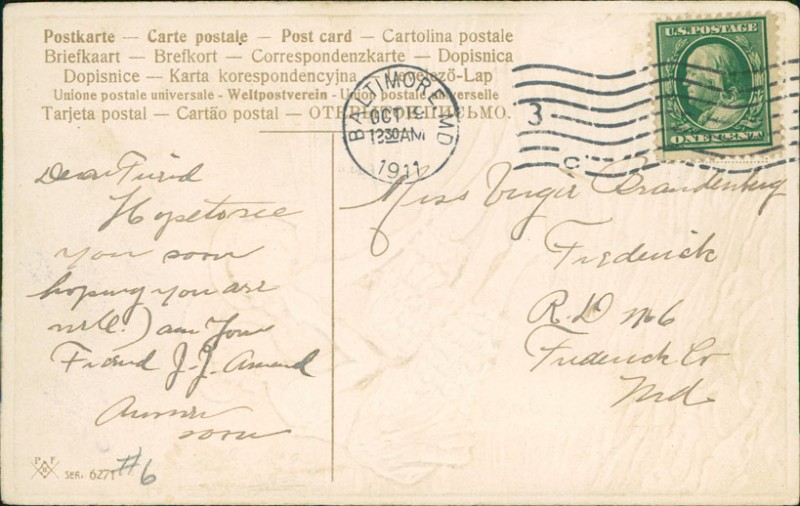 Postkarte — Carte postale — Post card — Cartolina postale
Briefkaart — Brefkort — Correspondenzkarte — Dopisnica
Dopisnice — Karta korespondencyjna — Levelező-Lap
Unione postale universale - Weltpostverein - Union postale universelle
Tarjeta postal — Cartão postal — ОТКРЫТОЕ ПИСЬМО.
U.S. POSTAGE
ONE CENT
BALTIMORE, MD
OCT
1230AM
1911
3
C
Dear Friend
Hope to see
you soon
hoping you are
well. I am your
Friend J. J. Amend
Answer
soon
Miss Virgie Brandenburg
Frederick
R.D No 6
Frederick Co
Md.
P F
B
SER. 6271
#6